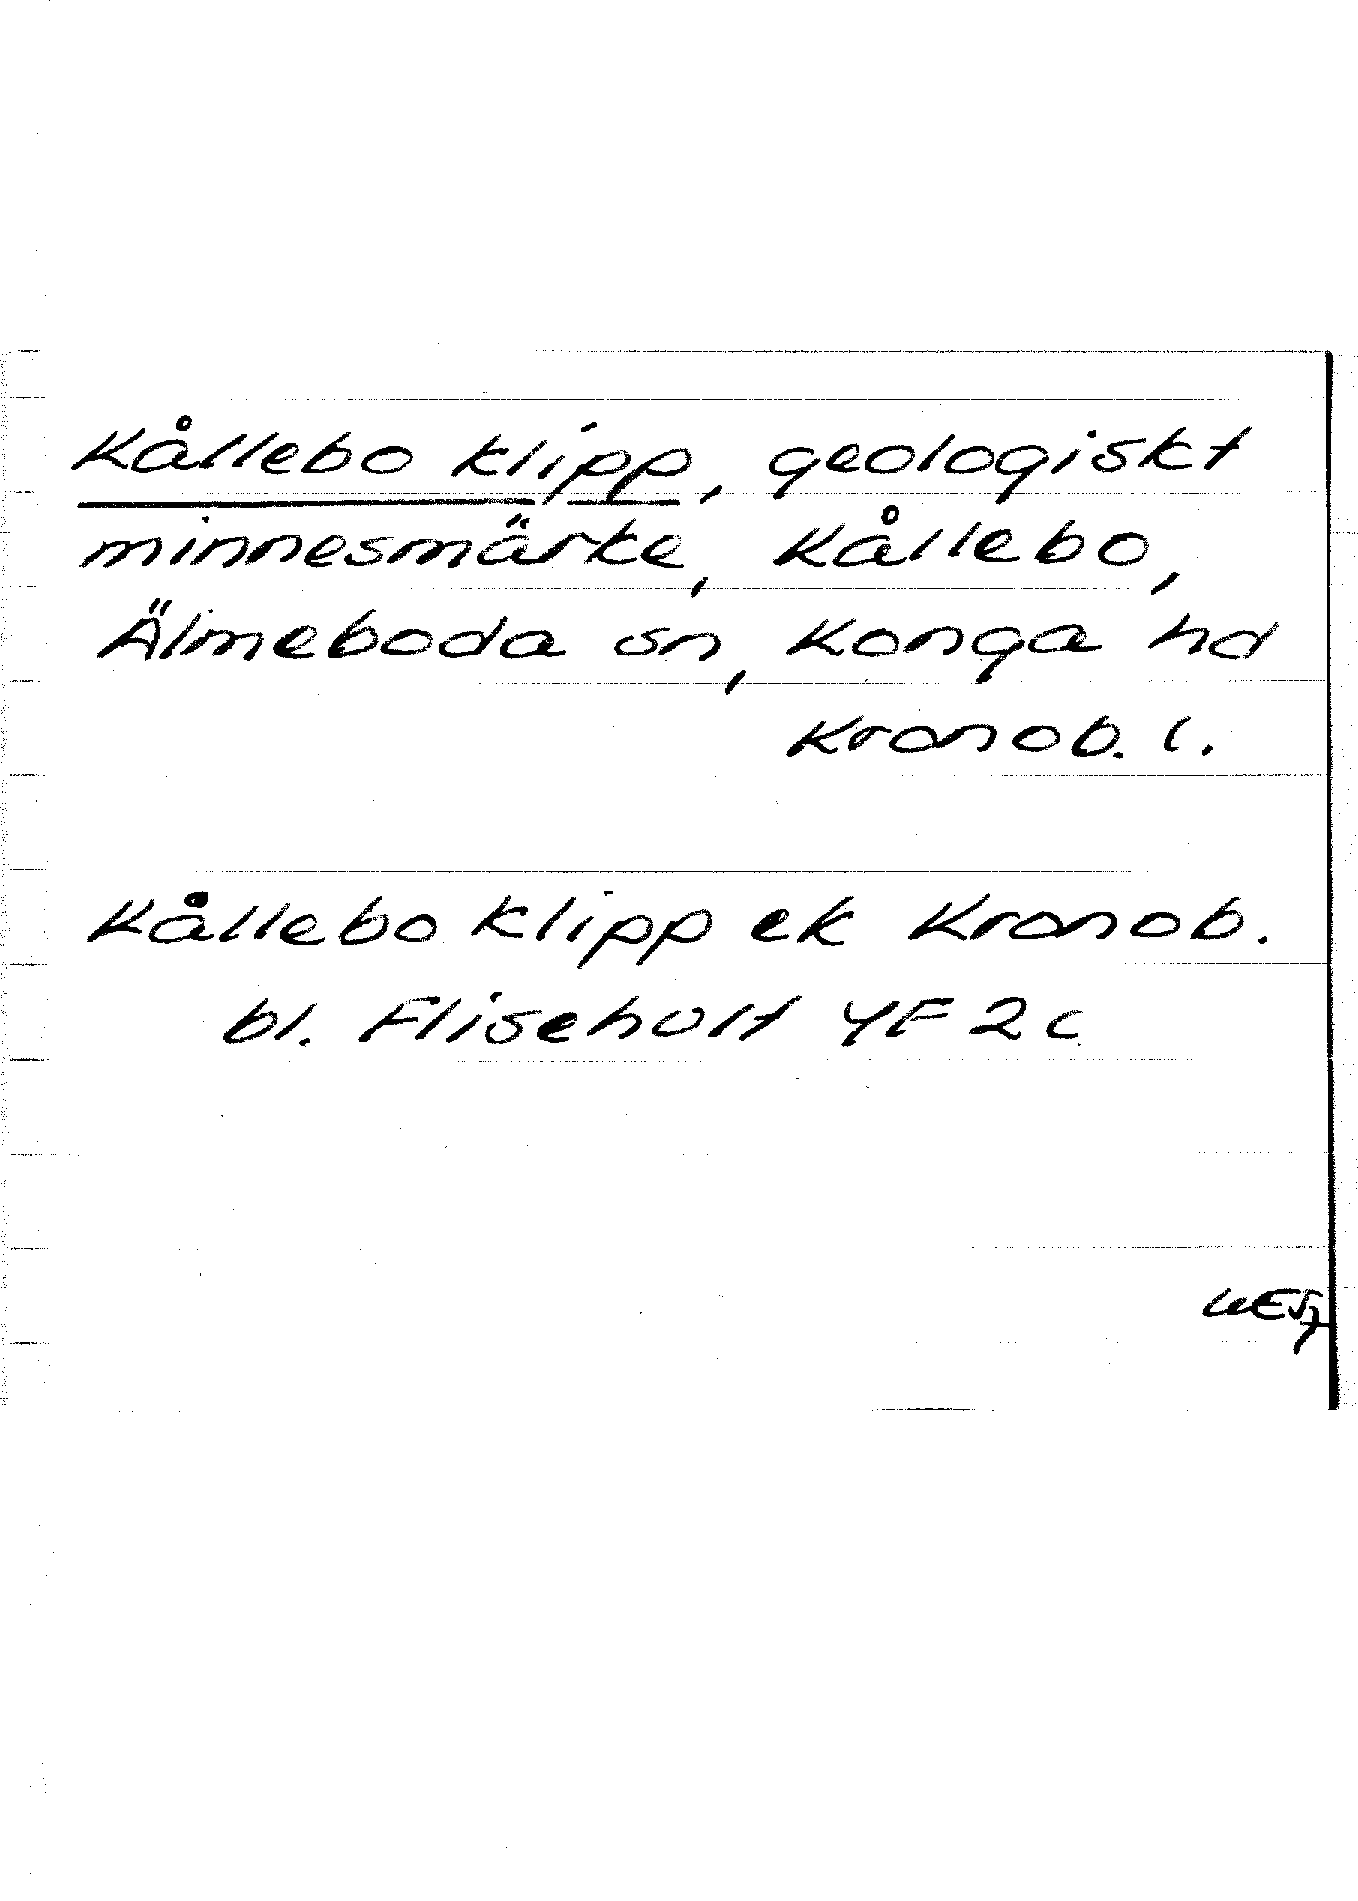 Kållebo klipp, geologiskt
minnesmärke, Kållebo,
Älmeboda sn, Konga hd
Kronob. l.
Kållebo klipp ek Kronob.
bl. Fliseholt 4F 2c